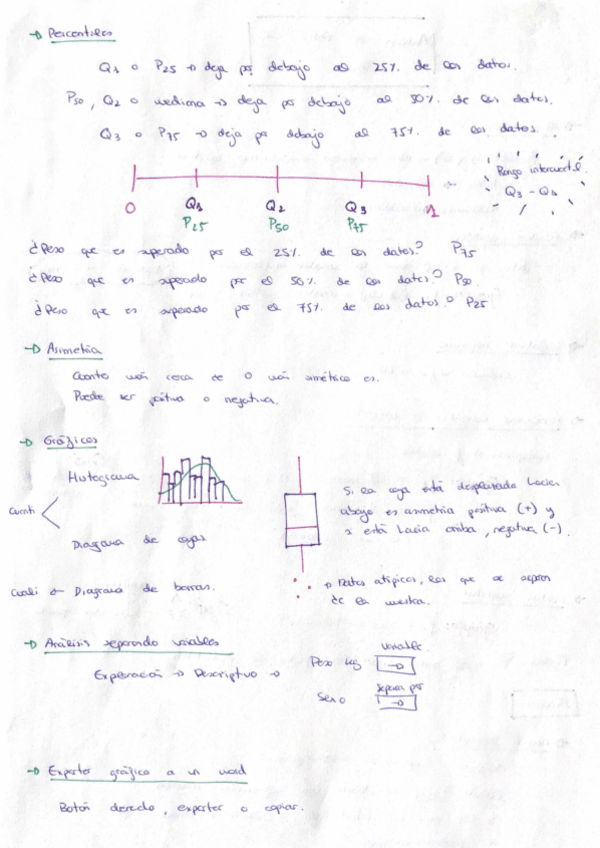 → Percentiles
Q1 o P25 → deja por debajo al 25% de los datos.
P50, Q2 o mediana → deja por debajo al 50% de los datos.
Q3 o P75 → deja por debajo al 75% de los datos.
Rango intercuartil
Q3 - Q1
0 Q1 Q2 Q3 1
P25 P50 P75
¿Peso que es superado por el 25% de los datos? P75
¿Peso que es superado por el 50% de los datos? P50
¿Peso que es superado por el 75% de los datos? P25
→ Asimetría
Cuanto más cerca de 0 más simétrico es.
Puede ser positiva o negativa.
→ Gráficos
Histograma
Cuanti
Diagrama de cajas
Si la caja está desplazada hacia
abajo es asimetría positiva (+) y
si está hacia arriba, negativa (-).
Cuali ← Diagrama de barras.
→ Datos atípicos, los que se
de la muestra.
→ Análisis separando variables
Exploración → Descriptivo →
variable
Peso kg →
separar por
Sexo →
→ Exportar gráfico a un word
Botón derecho, exportar o copiar.